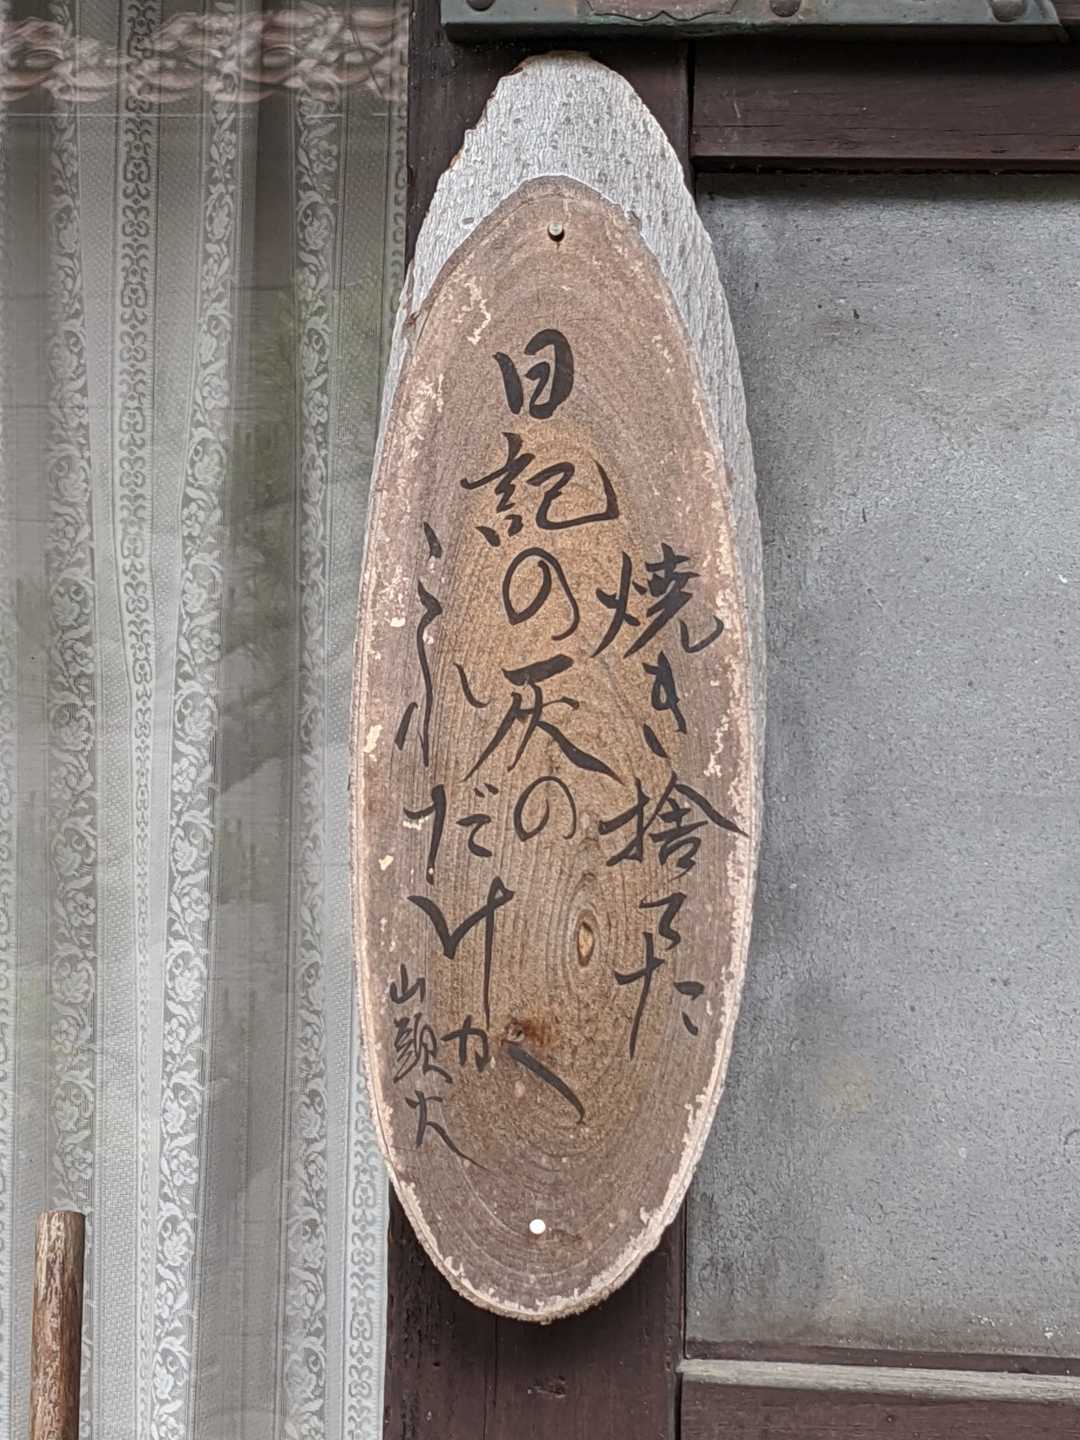 焼き捨てた
日記の灰の
これだけか
山頭火